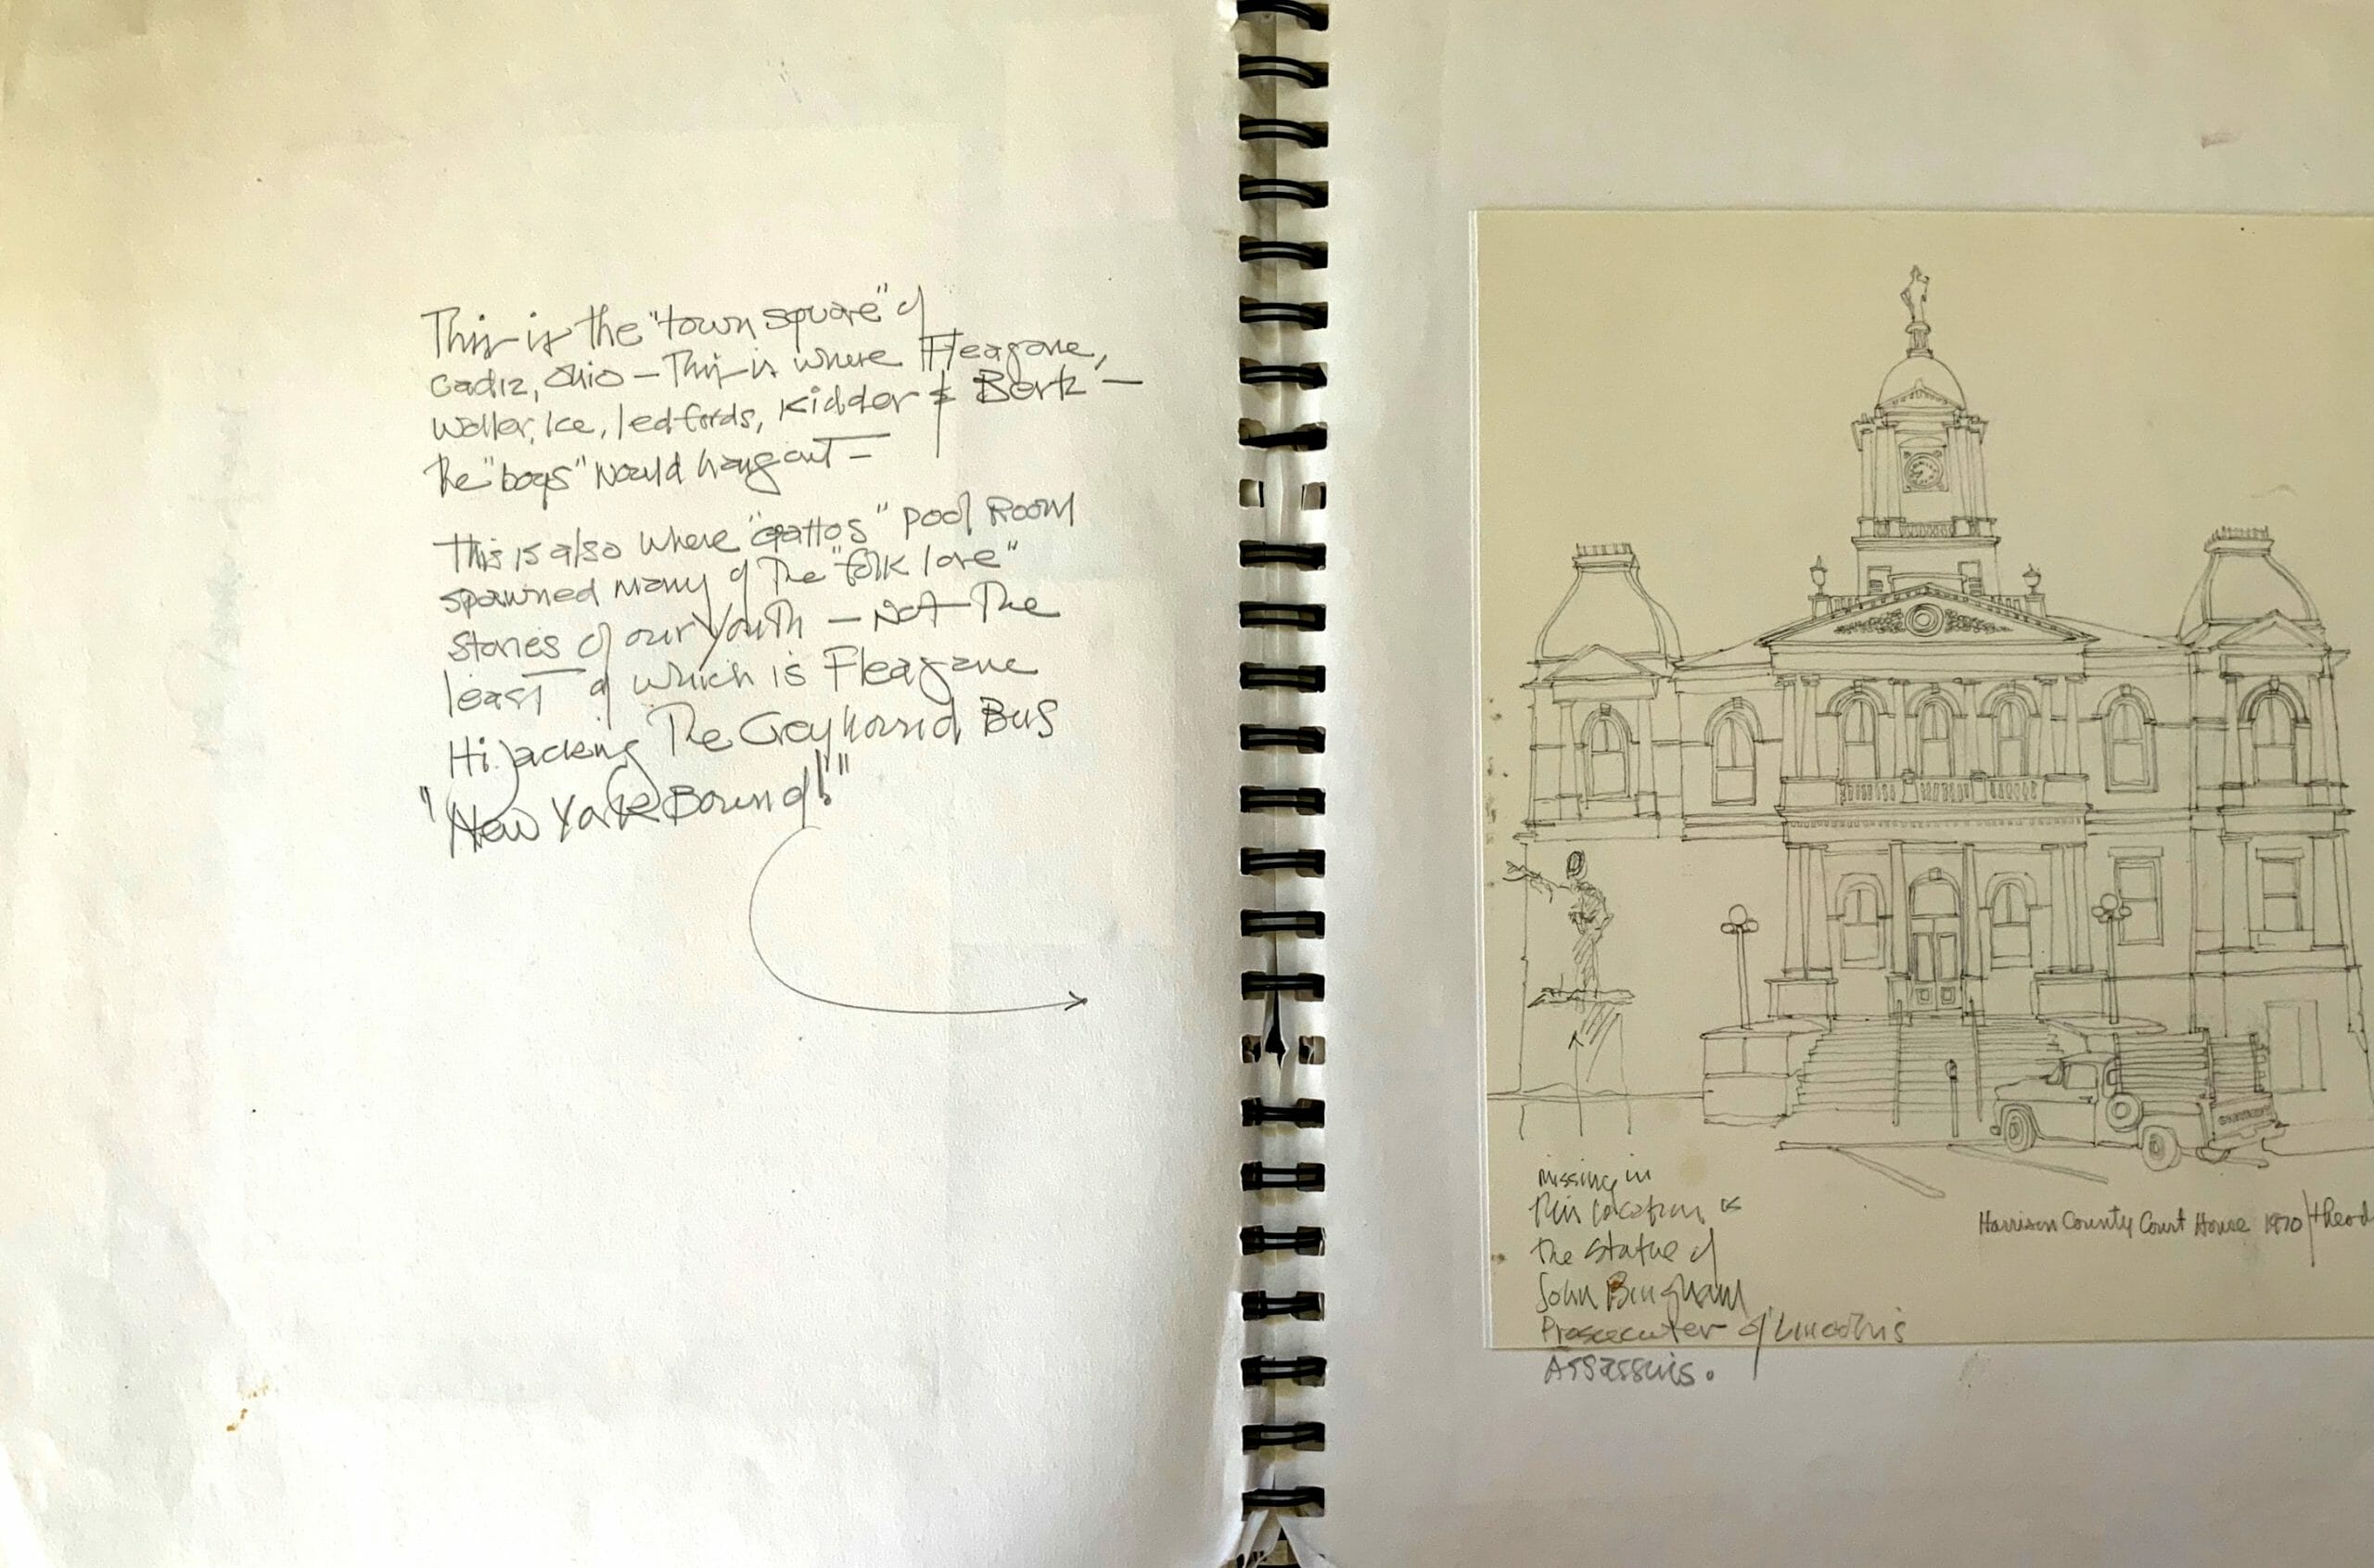 This is the "town square" of
Cadiz, Ohio - This is where Fleagane,
Waller, Ice, ledfords, Kidder & Bork -
The "boys" would hang out -
This is also where "Gattos" pool Room
spawned many of The "folk lore"
stories of our Youth - Not The
least of which is Fleagane
Hijacking The Greyhound Bus
"New York Bound!"
missing in
This location is
the statue of
John Bingham
Prosecuter of Lincoln's
Assassins.
Harrison County Court House 1970